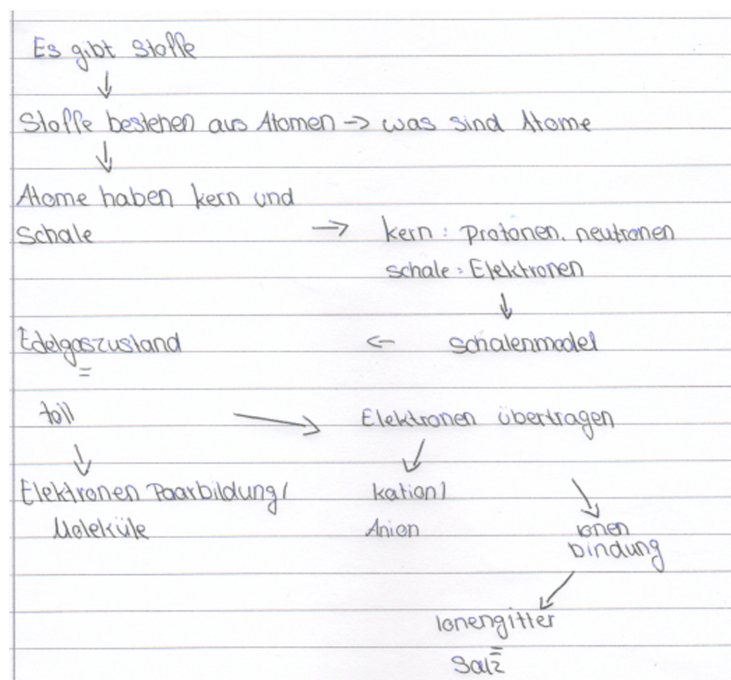 Es gibt Stoffe
↓
Stoffe bestehen aus Atomen → was sind Atome
↓
Atome haben kern und
Schale → kern: Protonen, neutronen
schale: Elektronen
↓
Edelgaszustand ← Schalenmodel
=
toll → Elektronen übertragen
↓ ↙ ↘
Elektronen Paarbildung/ kation/
Moleküle Anion Ionen
bindung
↙
Ionengitter
=
Salz